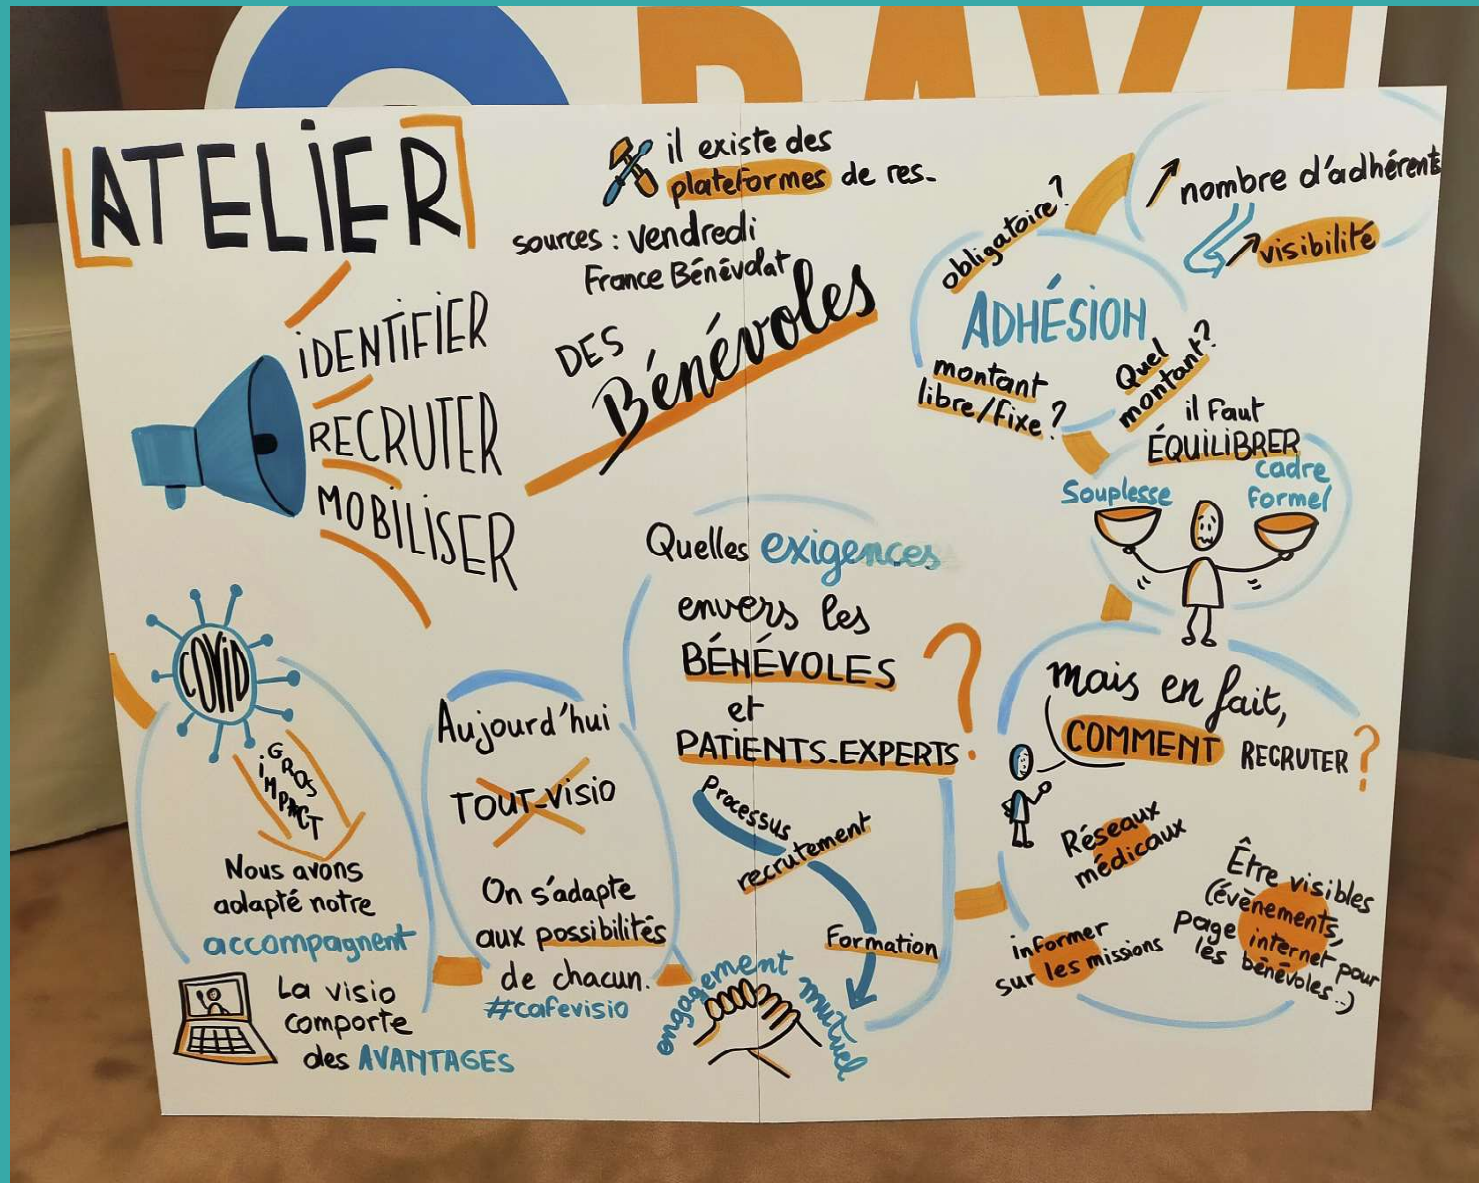 DAY !
ATELIER
IDENTIFIER
RECRUTER
MOBILISER
DES
Bénévoles
il existe des
plateformes de res-
sources : Vendredi
France Bénévolat
ADHÉSION
obligatoire ?
montant
libre/fixe ?
Quel
montant ?
↗ nombre d'adhérents
↗ visibilité
il faut
ÉQUILIBRER
Souplesse
cadre
formel
COVID
GROS
IMPACT
Nous avons
adapté notre
accompagnent
La visio
comporte
des AVANTAGES
Aujourd'hui
TOUT-VISIO
On s'adapte
aux possibilités
de chacun.
#cafevisio
Quelles exigences
envers les
BÉNÉVOLES
et
PATIENTS-EXPERTS ?
Processus
recrutement
Formation
engagement
mutuel
mais en fait,
COMMENT RECRUTER ?
Réseaux
médicaux
informer
sur les missions
Être visibles
(évènements,
page internet pour
les bénévoles...)